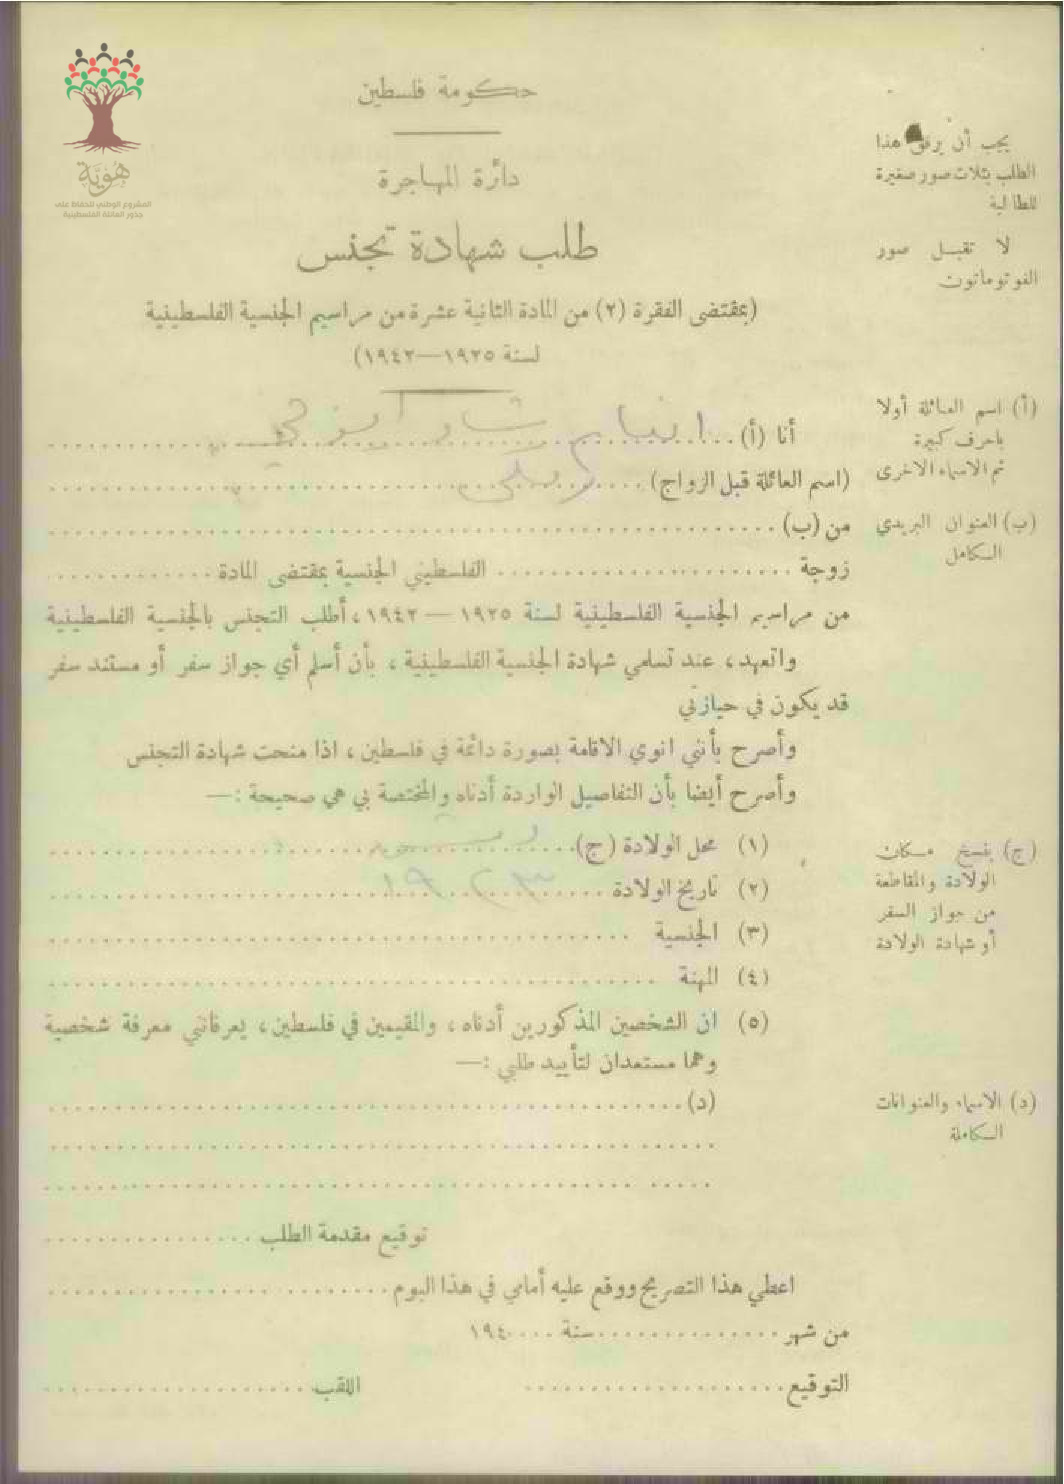 هوية
المشروع الوطني للحفاظ على
جذور العائلة الفلسطينية
حكومة فلسطين
دائرة المهاجرة
طلب شهادة تجنس
(بمقتضى الفقرة (٢) من المادة الثانية عشرة من مراسيم الجنسية الفلسطينية
لسنة ١٩٢٥—١٩٤٢)
يجب أن يرفق هذا
الطلب بثلاث صور صغيرة
للطالبة
لا تقبل صور
الفوتوماتون
(أ) اسم العائلة أولا
باحرف كبيرة
ثم الاسماء الاخرى
أنا (أ)
(اسم العائلة قبل الزواج)
(ب) العنوان البريدي
الكامل
من (ب)
زوجة .......... الفلسطيني الجنسية بمقتضى المادة ..........
من مراسيم الجنسية الفلسطينية لسنة ١٩٢٥ — ١٩٤٢، أطلب التجنس بالجنسية الفلسطينية
واتعهد، عند تسلمي شهادة الجنسية الفلسطينية، بأن أسلم أي جواز سفر أو مستند سفر
قد يكون في حيازتي
وأصرح بأنني انوي الاقامة بصورة دائمة في فلسطين، اذا منحت شهادة التجنس
وأصرح أيضا بأن التفاصيل الواردة أدناه والمختصة بي هي صحيحة :—
(١) محل الولادة (ج)
(٢) تاريخ الولادة ١٩٢٣
(٣) الجنسية
(٤) المهنة
(ج) بفسخ مكان
الولادة والمقاطعة
من جواز السفر
أو شهادة الولادة
(٥) ان الشخصين المذكورين أدناه، والمقيمين في فلسطين، يعرفانني معرفة شخصية
وهما مستعدان لتأييد طلبي :—
(د)
(د) الاسماء والعنوانات
الكاملة
توقيع مقدمة الطلب
اعطي هذا التصريح ووقع عليه أمامي في هذا اليوم
من شهر .......... سنة .... ١٩٤
التوقيع .......... اللقب ..........